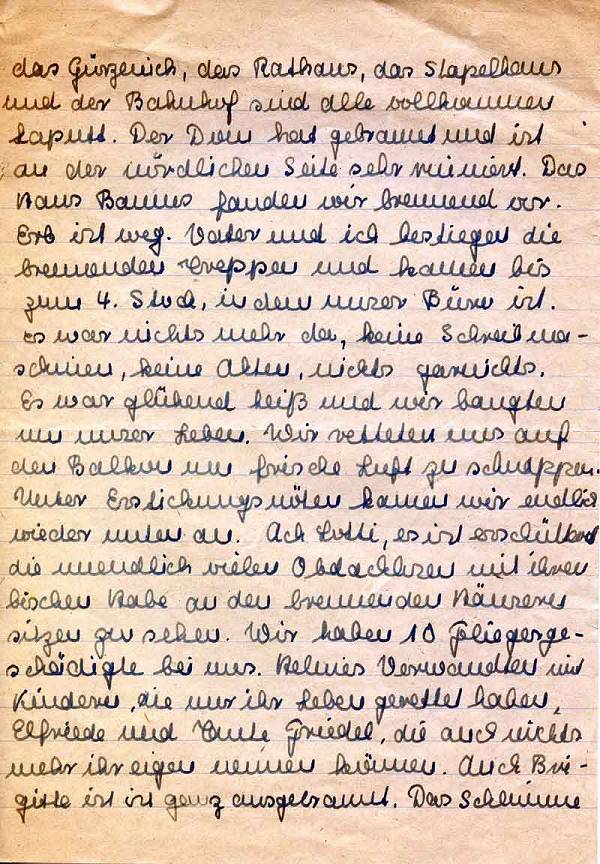 das Gürzenich, das Rathaus, das Stapelhaus
und der Bahnhof sind alle vollkommen
kaputt. Der Dom hat gebrannt und ist
an der nördlichen Seite sehr ruiniert. Das
Haus Baums fanden wir brennend vor.
Erb ist weg. Vater und ich bestiegen die
brennenden Treppen und kamen bis
zum 4. Stock, in dem unser Büro ist.
Es war nichts mehr da, keine Schreibma-
schinen, keine Akten, nichts garnichts.
Es war glühend heiß und wir bangten
um unser Leben. Wir retteten uns auf
den Balkon um frische Luft zu schnappen.
Unter Erstickungsnöten kamen wir endlich
wieder unten an. Ach Lotti, es ist erschütternd
die unendlich vielen Obdachlosen mit ihren
bischen Habe an den brennenden Häusern
sitzen zu sehen. Wir haben 10 Flieger­ge-
schädigte bei uns. Helmes Verwandten mit
Kindern, die nur ihr Leben gerettet haben,
Elfriede und Tante Friedel, die auch nichts
mehr ihr eigen nennen können. Auch Bri-
gitte ist ist ganz ausgebrannt. Das Schlimme